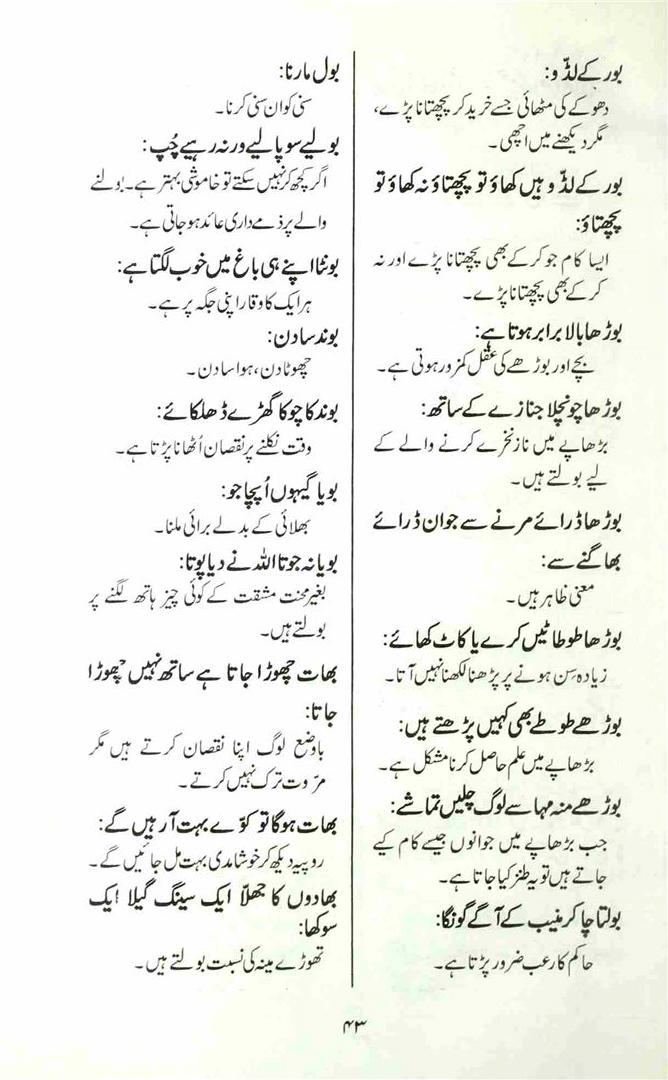 بور کے لڈّو:
دھوکے کی مٹھائی جسے خرید کر پچھتانا پڑے،
مگر دیکھنے میں اچھی۔
بور کے لڈّو ہیں کھاؤ تو پچھتاؤ نہ کھاؤ تو
پچھتاؤ:
ایسا کام جو کر کے بھی پچھتانا پڑے اور نہ
کر کے بھی پچھتانا پڑے۔
بوڑھا بالا برابر ہوتا ہے:
بچے اور بوڑھے کی عقل کمزور ہوتی ہے۔
بوڑھا چونچلا جنازے کے ساتھ:
بڑھاپے میں ناز نخرے کرنے والے کے
لیے بولتے ہیں۔
بوڑھا ڈرائے مرنے سے جوان ڈرائے
بھاگنے سے:
معنی ظاہر ہیں۔
بوڑھا طوطا ٹیں کرے یا کاٹ کھائے:
زیادہ سِن ہونے پر پڑھنا لکھنا نہیں آتا۔
بوڑھے طوطے بھی کہیں پڑھتے ہیں:
بڑھاپے میں علم حاصل کرنا مشکل ہے۔
بوڑھے منہ مہاسے لوگ چلیں تماشے:
جب بڑھاپے میں جوانوں جیسے کام کیے
جاتے ہیں تو یہ طنز کیا جاتا ہے۔
بولتا چاکر منیب کے آگے گونگا:
حاکم کا رعب ضرور پڑتا ہے۔
بول مارنا:
سنی کو ان سنی کرنا۔
بولیے سو پالیے ورنہ رہیے چُپ:
اگر کچھ کر نہیں سکتے تو خاموشی بہتر ہے۔ بولنے
والے پر ذمے داری عائد ہو جاتی ہے۔
بونٹا اپنے ہی باغ میں خوب لگتا ہے:
ہر ایک کا وقار اپنی جگہ پر ہے۔
بوند سا دن:
چھوٹا دن، ہوا سا دن۔
بوند کا چوکا گھڑے ڈھلکائے:
وقت نکلنے پر نقصان اُٹھانا پڑتا ہے۔
بویا گیہوں اُپجا جو:
بھلائی کے بدلے برائی ملنا۔
بویا نہ جوتا اللہ نے دیا پوتا:
بغیر محنت مشقت کے کوئی چیز ہاتھ لگنے پر
بولتے ہیں۔
بھات چھوڑا جاتا ہے ساتھ نہیں چھوڑا
جاتا:
باوضع لوگ اپنا نقصان کرتے ہیں مگر
مرّوت ترک نہیں کرتے۔
بھات ہوگا تو کوّے بہت آ رہیں گے:
روپیہ دیکھ کر خوشامدی بہت مل جائیں گے۔
بھادوں کا جھلّا ایک سینگ گیلا ایک
سوکھا:
تھوڑے مینہ کی نسبت بولتے ہیں۔
۴۳